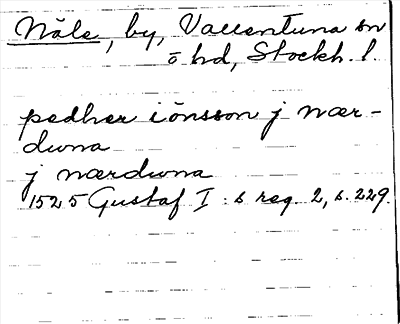 Nåle, by, Vallentuna sn
ö hd, Stockh. l.
pedher iönsson j nær-
duna
j nærduna
1525 Gustaf I:s reg. 2, s. 229.